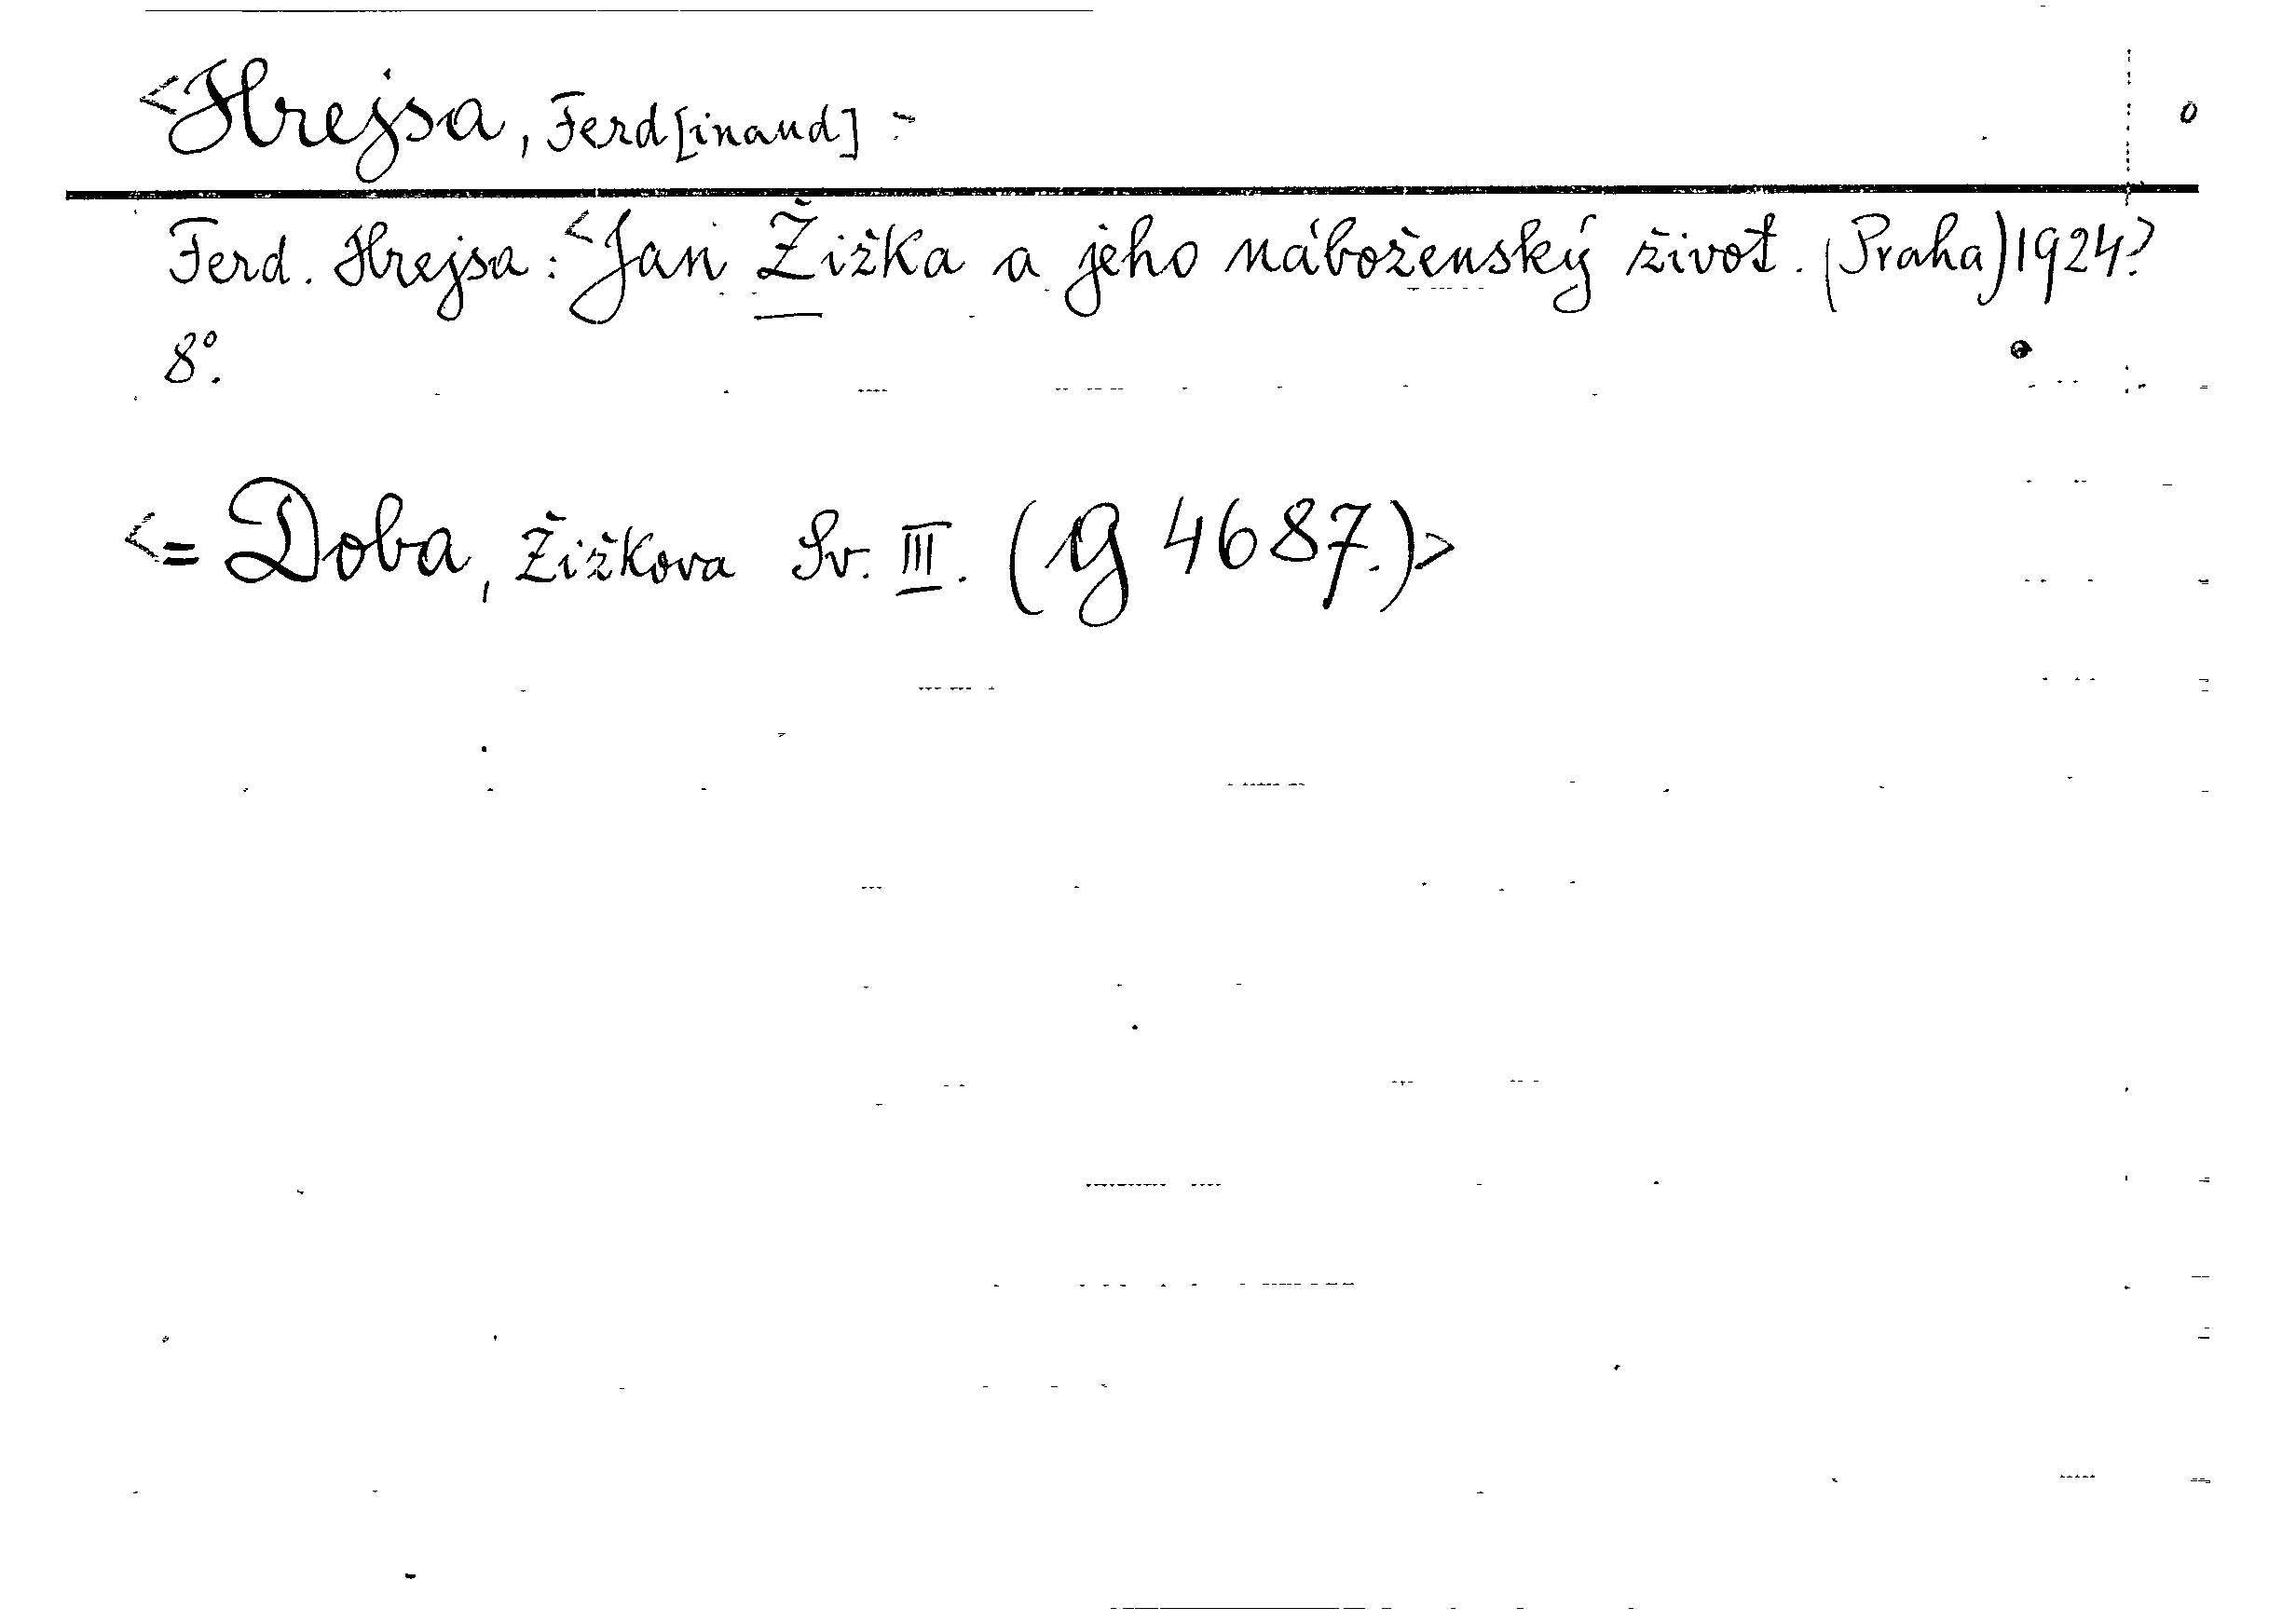 <Hrejsa, Ferd[inand] >
Ferd. Hrejsa: <Jan Žižka a jeho náboženský život. (Praha) 1924?
8°.
<= Doba, Žižkova Sv. III. (G 4687.)>